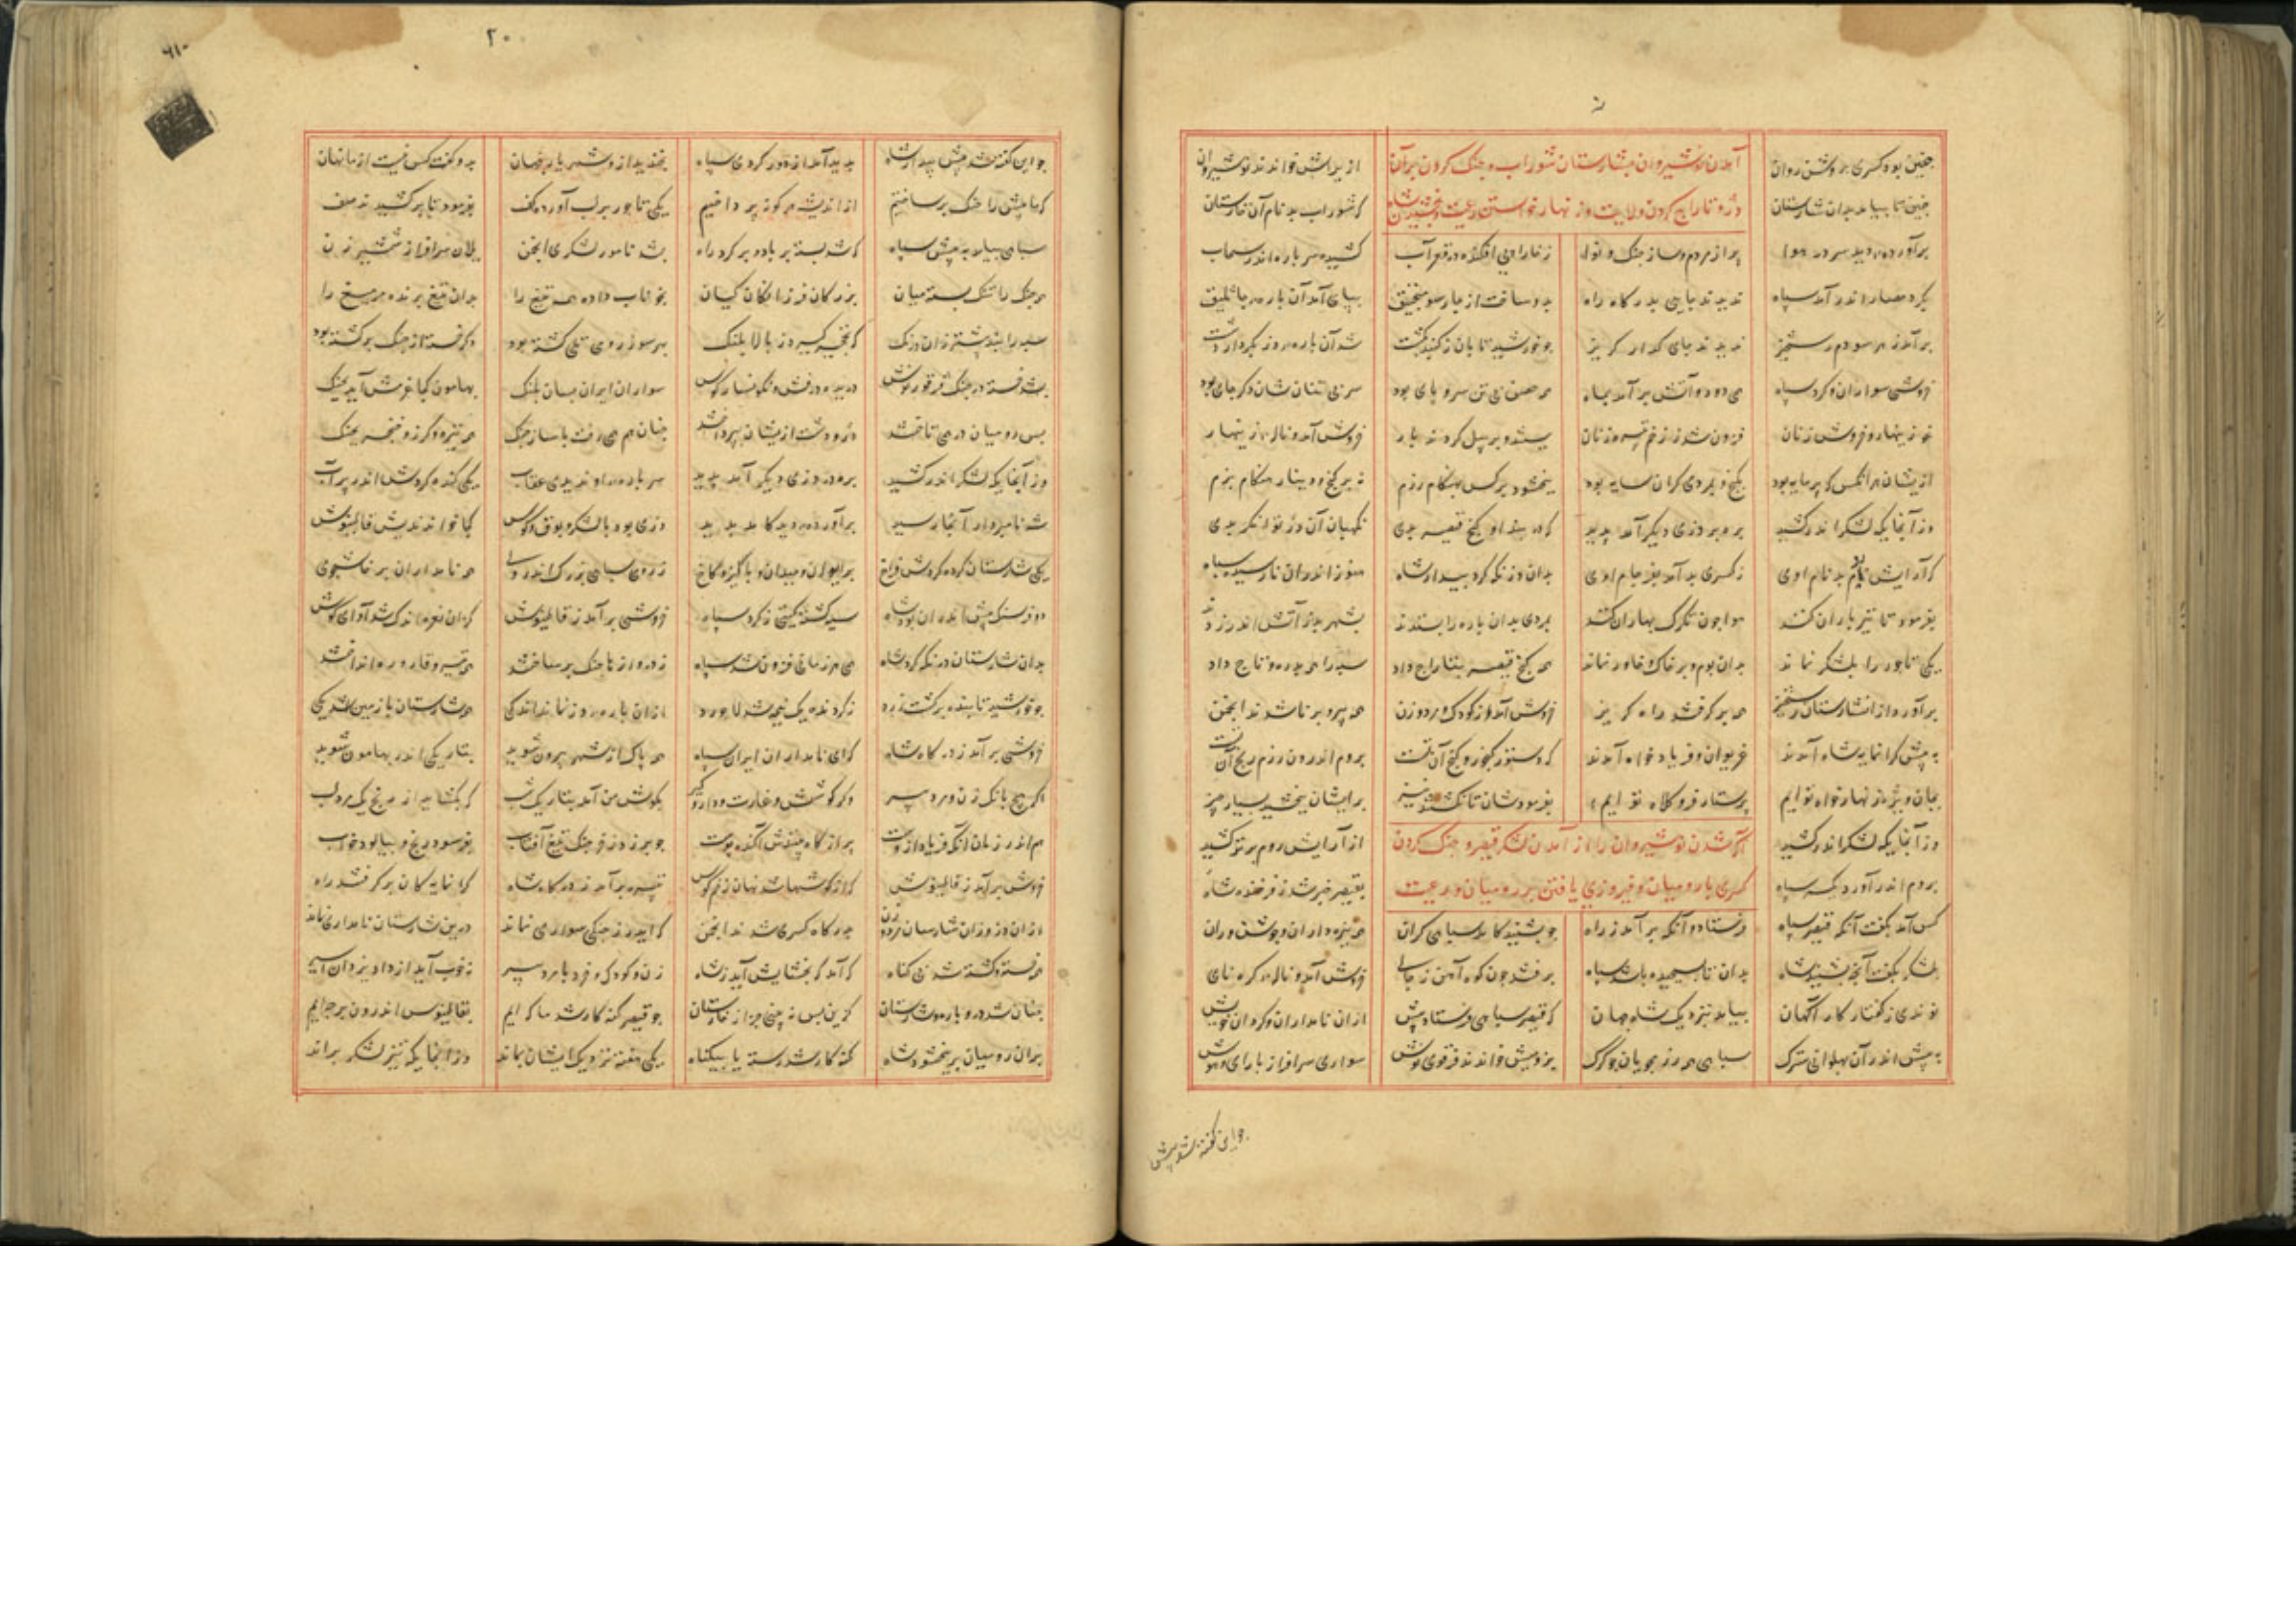 چنین بود کسری بر وشن روان آمدن نوشیروان بشارستان شوراب و جنک کردن بر آن از یراش خواندند نوشیروان
چنین تا بیامد بدان شارستان دژ و تاراج کردن ولایت وز نهار خواستن رعیت و بخشیدن شاه که شوراب بد نام آن کارستان
برآورده دید سر در هوا پر از مردم و ساز جنک و نوا ز خارا پی افکنده در قعر آب کشیده سر باره اندر سحاب
بکرد حصار اندر آمد سپاه ندیدند جایی بدرکاه راه بدو ساخت از چار سو منجنیق بپای آمد آن باره جاثلیق
برآمد ز هر سو دم رستخیز ندیدند جای کذار کریز چو خورشید تابان ز کنبد بکشت شد آن باره دز بکردار دشت
خروش سواران و کرد سپاه می دود و آتش برآمد بماه همه حصن بی تن سر و پای بود سر بی تنان شان دکر جای بود
غو زینهار و خروش زنان فزون شد ز زخم تبیره زنان ببستند و بر پیل کردند بار خروش آمد و ناله زینهار
ازیشان هر انکس که پرمایه بود بکنج و بمردی کران سایه بود نبخشود بر کس بهنکام رزم نه بر کنج و دینار هنکام بزم
وز آنجایکه لشکر اندر کشید بره بر دزی دیکر آمد پدید که در بند او کنج قیصر بدی نکهبان آن دژ توانکر بدی
که آرایش روم بد نام اوی ز کسری بد آمد بفرجام اوی بدان دز نکه کرد بیدار شاه هنوز اندران نارسیده سپاه
بفرمود تا تیر باران کنند هوا چون تکرک بهاران کنند بمردی بدان باره را بستدند بشهر اندر آتش اندر زدند
یکی تاجور را بلشکر نماند بدان بوم و بر خاک و خاور نماند همه کنج قیصر بتاراج داد سپه را همه بدره و تاج داد
برآورد از انشارستان رستخیز همه برکرفتند راه کریز خروش آمد از کودک و مرد و زن همه پیر و برنا شدند انجمن
به پیش کرانمایه شاه آمدند غریوان و فریاد خواه آمدند که دستور کنجور و کنج آن تست بروم اندرون رزم و رنج آن تست
بجان ویژه زنهار خواه توایم پرستار فر کلاه توایم بفرمودشان تا نکشتند نیز برایشان ببخشید بسیار چیز
وز آنجایکه لشکر اندر کشید آکه شدن نوشیروان را از آمدن لشکر قیصر و جنک کردن از آرایش روم برتر کشید
بروم اندر آورد یکسر سپاه کسری با رومیان و فیروزی یافتن بر رومیان و رعیت بقیصر خبر شد ز فرخنده شاه
کس آمد بکفت آنکه قیصر سپاه فرستاد و آنکه برآمد ز راه چو بشنید کامد سپاهی کران همه نیزه داران و جوشن وران
بلشکر بکفت آنچه بشنید شاه بدان تا بسیجیده باشد سپاه برفتند چون کوه آهن ز جای خروش آمد و ناله کره نای
نوندی ز کفتار کار آکهان بیامد بنزدیک شاه جهان که قیصر سپاهی فرستاد پیش از ان نامداران و کردان خویش
به پیش اندر آن پهلوانی سترک سپاهی همه رزم جویان چو کرک بروميش خواندند فرفوریوش سواری سرافراز با رای و هوش
چو این کفته شد پیش
۲۰
چو این کفته شد پیش بیدار شاه پدید آمد از دور کردی سپاه بخندید از و شهریار جهان بدو کفت کس نیست از ما نهان
که ما پیش را جنک بر ساختیم از اندیشه هر کونه پرداختیم یکی تاجور برلب آورده کف بفرمود تا برکشیدند صف
سپاهی بیامد به پیش سپاه که شد بسته بر باد و بر کرد راه بشد نامور لشکری انجمن یلان سرافراز شمشیر زن
همه جنک را تنک بسته میان بزرکان فرزانکان کیان بخوناب داده همه تیغ را بدان تیغ برنده مر میغ را
سپه را نبد بیشتر زان درنک که نخچیر کیرد ز بالا پلنک بهر سو ز رومی تلی کشته بود دکر خسته از جنک برکشته بود
بشد خسته در جنک فرفوریوش دریده درفش و نکونسار کوس سواران ایران بسان پلنک بهامون کجا غرمش آید بچنک
پس رومیان در می تاختند در و دشت ازیشان بپرداختند چنان هم می رفت با ساز جنک همه نیزه و کرز و خنجر بچنک
وز آنجایکه لشکر اندر کشید بره بر دزی دیکر آمد پدید سر باره را و ندیدی عقاب یکی کنده کردش اندر پر آب
شه نامبردار آنجا رسید برآورده دید کامد پدید دزی بود با لشکر و بوق و کوس کجا خواندندیش قالینوش
یکی شارستان کرد کردش فراخ پر ایوان و میدان و پاکیزه کاخ ز رومی سپاهی بزرک اندروی همه نامداران پرخاشجوی
دو فرسنک پیش اندر ان بود شاه سیه کشت کیتی ز کرد سپاه خروشی برآمد ز قالینوش کز ان نعره اندک شد آوای کوس
بدان شارستان در نکه کرد شاه همی هر زمانی فزون شد سپاه ز دروازها جنک بر ساختند همه تیر و قاروره انداختند
چو خورشید تابنده برکشت زرد ز کردنده یک نیمه شد لاجورد از ان باره دز نماند اندکی همه شارستان با زمین شد یکی
خروشی برآمد ز درکاه شاه که ای نامداران ایران سپاه همه پاک از شهر بیرون شوید بتاریکی اندر بهامون شوید
اکر هیچ بانک زن و مرد پیر دکر کوشش و غارت و دار و کیر بکوش من آمد بتاریک شب که بکشاید از رنج یک مرد لب
هم اندر زمان آنکه فریاد ازوست پر از کاه بینندش آکنده پوست چو برزد ز خرچنک تیغ آفتاب بفرسود رنج و بپالود خواب
خروش برآمد ز قالینوش کز ان کوششها شد نهان زخم کوس تبیره برآمد ز درکاه شاه کرانمایه کان برکرفتند راه
از ان دز وزان شارسان مرد و زن بدرکاه کسری شدند انجمن که ایدر ز جنکی سواری نماند درین شارستان نامداری نماند
همه خسته و کشته شد بی کناه که آمد که بخشایش آید ز شاه زن و کودک خرد با مرد پیر نه خوب آید از داد یزدان اسیر
چنان شد در و باره و شارستان کزین پس نبینی جز از خارستان چو قیصر کنه کار شد ما که ایم بقالینوس اندرون بر چه ایم
بران رومیان بر ببخشود شاه کنه کار شد رسته با بیکناه یکی هفته نزدیک ایشان بماند وز انجایکه تیز لشکر براند